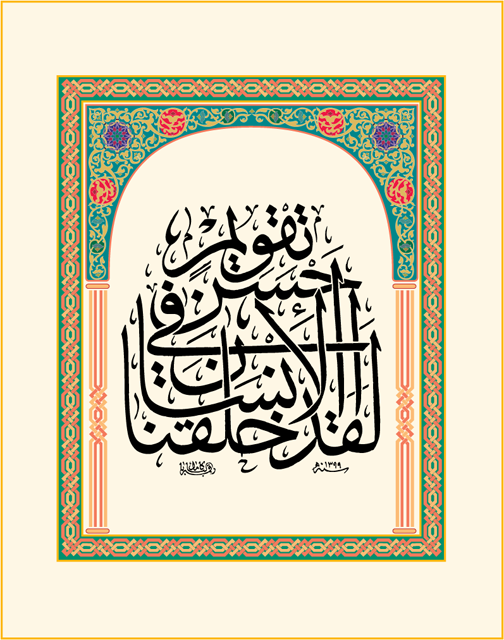 لَقَدْ خَلَقْنَا
الْإِنْسَانَ فِي
أَحْسَنِ
تَقْوِيمٍ
سنة ١٣٩٩